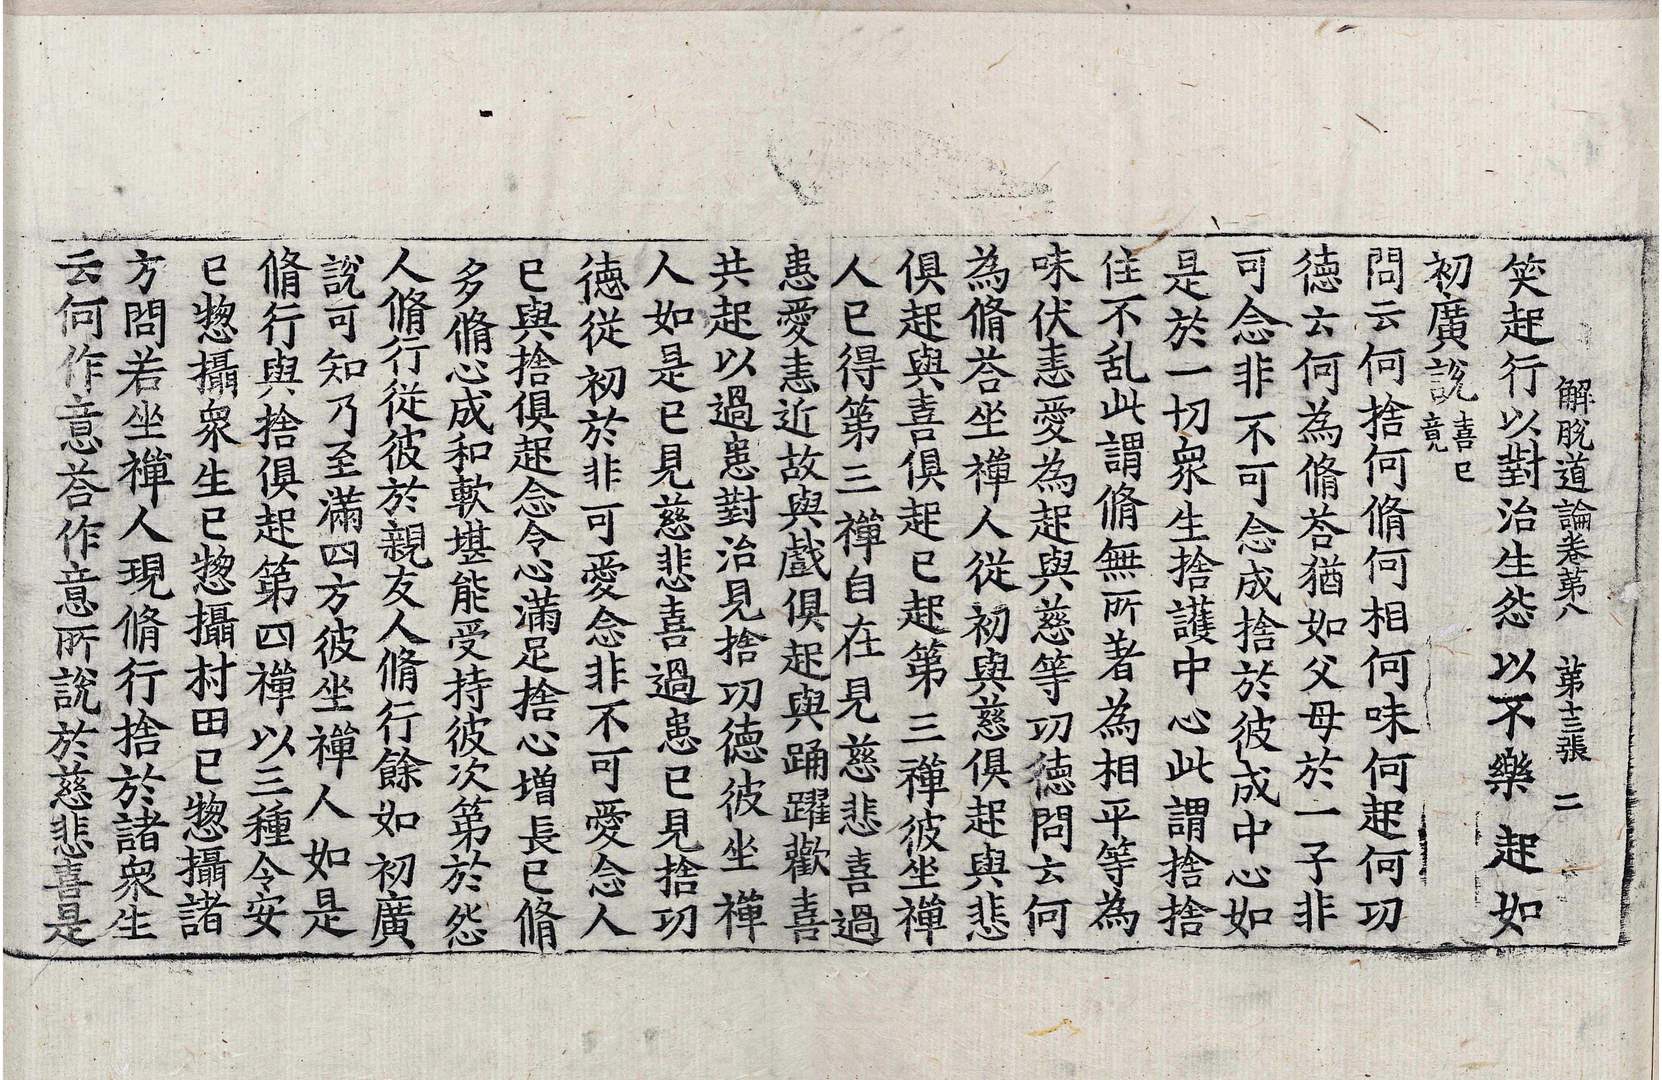 解脫道論卷第八　第十三張　二
笑起行以對治生怨以不樂起如
初廣說喜已竟
問云何捨何脩何相何味何起何功
德云何為脩荅猶如父母於一子非
可念非不可念成捨於彼成中心如
是於一切衆生捨護中心此謂捨捨
住不乱此謂脩無所著為相平等為
味伏恚愛為起與慈等功德問云何
為脩荅坐禪人從初與慈俱起與悲
俱起與喜俱起已起第三禪彼坐禪
人已得第三禪自在見慈悲喜過
患愛恚近故與戲俱起與踊躍歡喜
共起以過患對治見捨功德彼坐禪
人如是已見慈悲喜過患已見捨功
德從初於非可愛念非不可愛念人
已與捨俱起念令心滿足捨心增長已脩
多脩心成和軟堪能受持彼次第於怨
人脩行從彼於親友人脩行餘如初廣
說可知乃至滿四方彼坐禪人如是
脩行與捨俱起第四禪以三種令安
已惣攝衆生已惣攝村田已惣攝諸
方問若坐禪人現脩行捨於諸衆生
云何作意荅作意所說於慈悲喜是